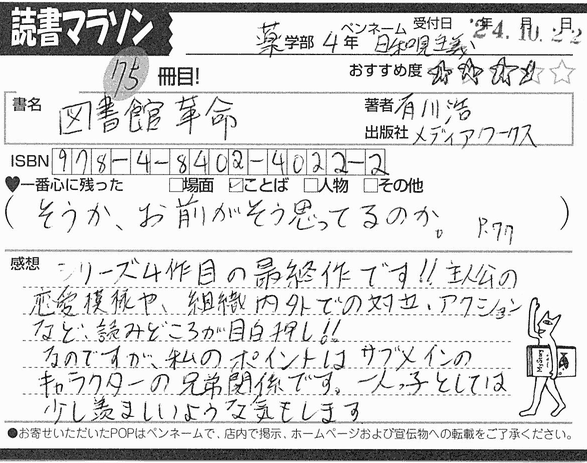 読書マラソン
薬学部 4年 ペンネーム 日和見主義 受付日 '24年10月22日
75冊目!
おすすめ度 ★★★★☆☆
書名 図書館革命
著者 有川浩
出版社 メディアワークス
ISBN 978-4-8402-4022-2
♥一番心に残った □場面 ☑ことば □人物 □その他
(そうか、お前がそう思ってるのか。 P.77)
感想 シリーズ4作目の最終作です!! 主人公の
恋愛模様や、組織内外での対立、アクション
など、読みどころが目白押し!!
なのですが、私のポイントはサブメインの
キャラクターの兄弟関係です。一人っ子としては
少し羨ましいような気もします
●お寄せいただいたPOPはペンネームで、店内で掲示、ホームページおよび宣伝物への転載をご了承ください。